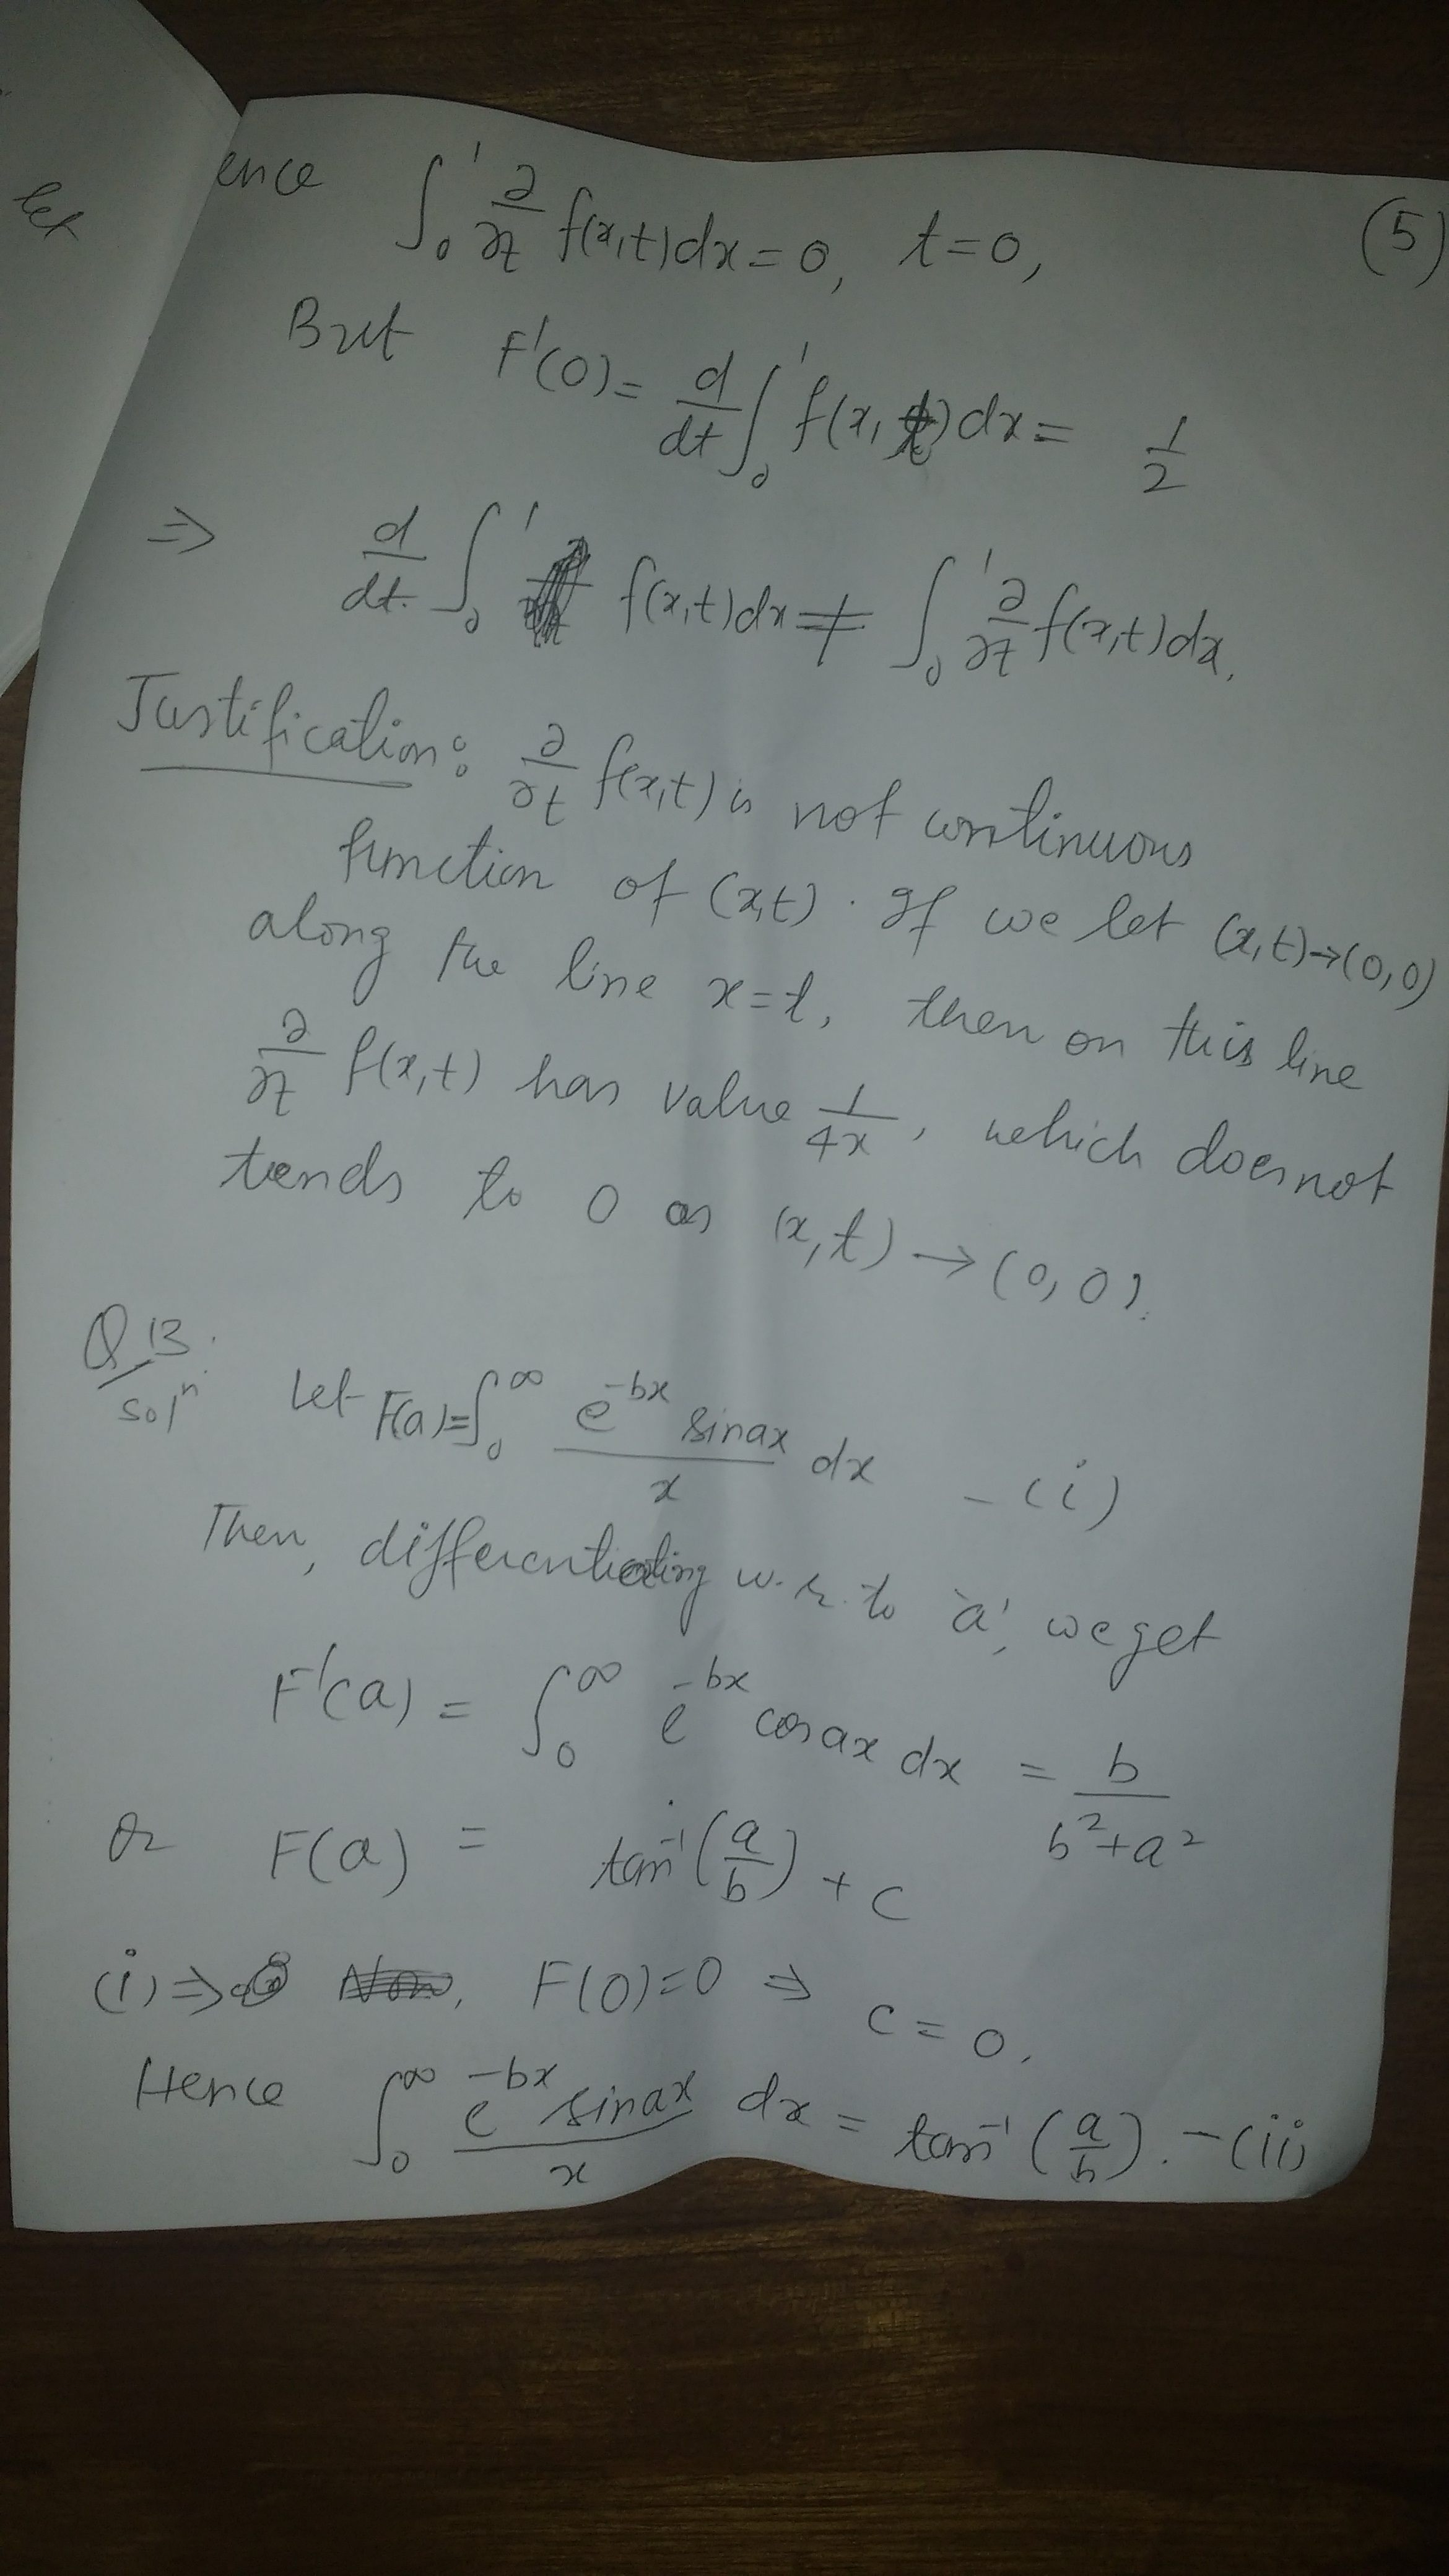 let
ence ∫₀¹ ∂/∂t f(x,t)dx = 0, t=0, (5)
But F'(0) = d/dt ∫₀¹ f(x,t)dx = 1/2
⇒ d/dt ∫₀¹ f(x,t)dx ≠ ∫₀¹ ∂/∂t f(x,t)dx.
Justification: ∂/∂t f(x,t) is not continuous
function of (x,t). If we let (x,t)→(0,0)
along the line x=t, then on this line
∂/∂t f(x,t) has value 1/4x, which does not
tends to 0 as (x,t)→(0,0).
Q 13.
solⁿ. Let F(a)=∫₀^∞ e^-bx sinax / x dx - (i)
Then, differentiating w.r. to 'a', we get
F'(a) = ∫₀^∞ e^-bx cosax dx = b/(b²+a²)
or F(a) = tan⁻¹(a/b) + c
(i)⇒ F(0)=0 ⇒ c = 0.
Hence ∫₀^∞ e^-bx sinax / x dx = tan⁻¹(a/b). -(ii)